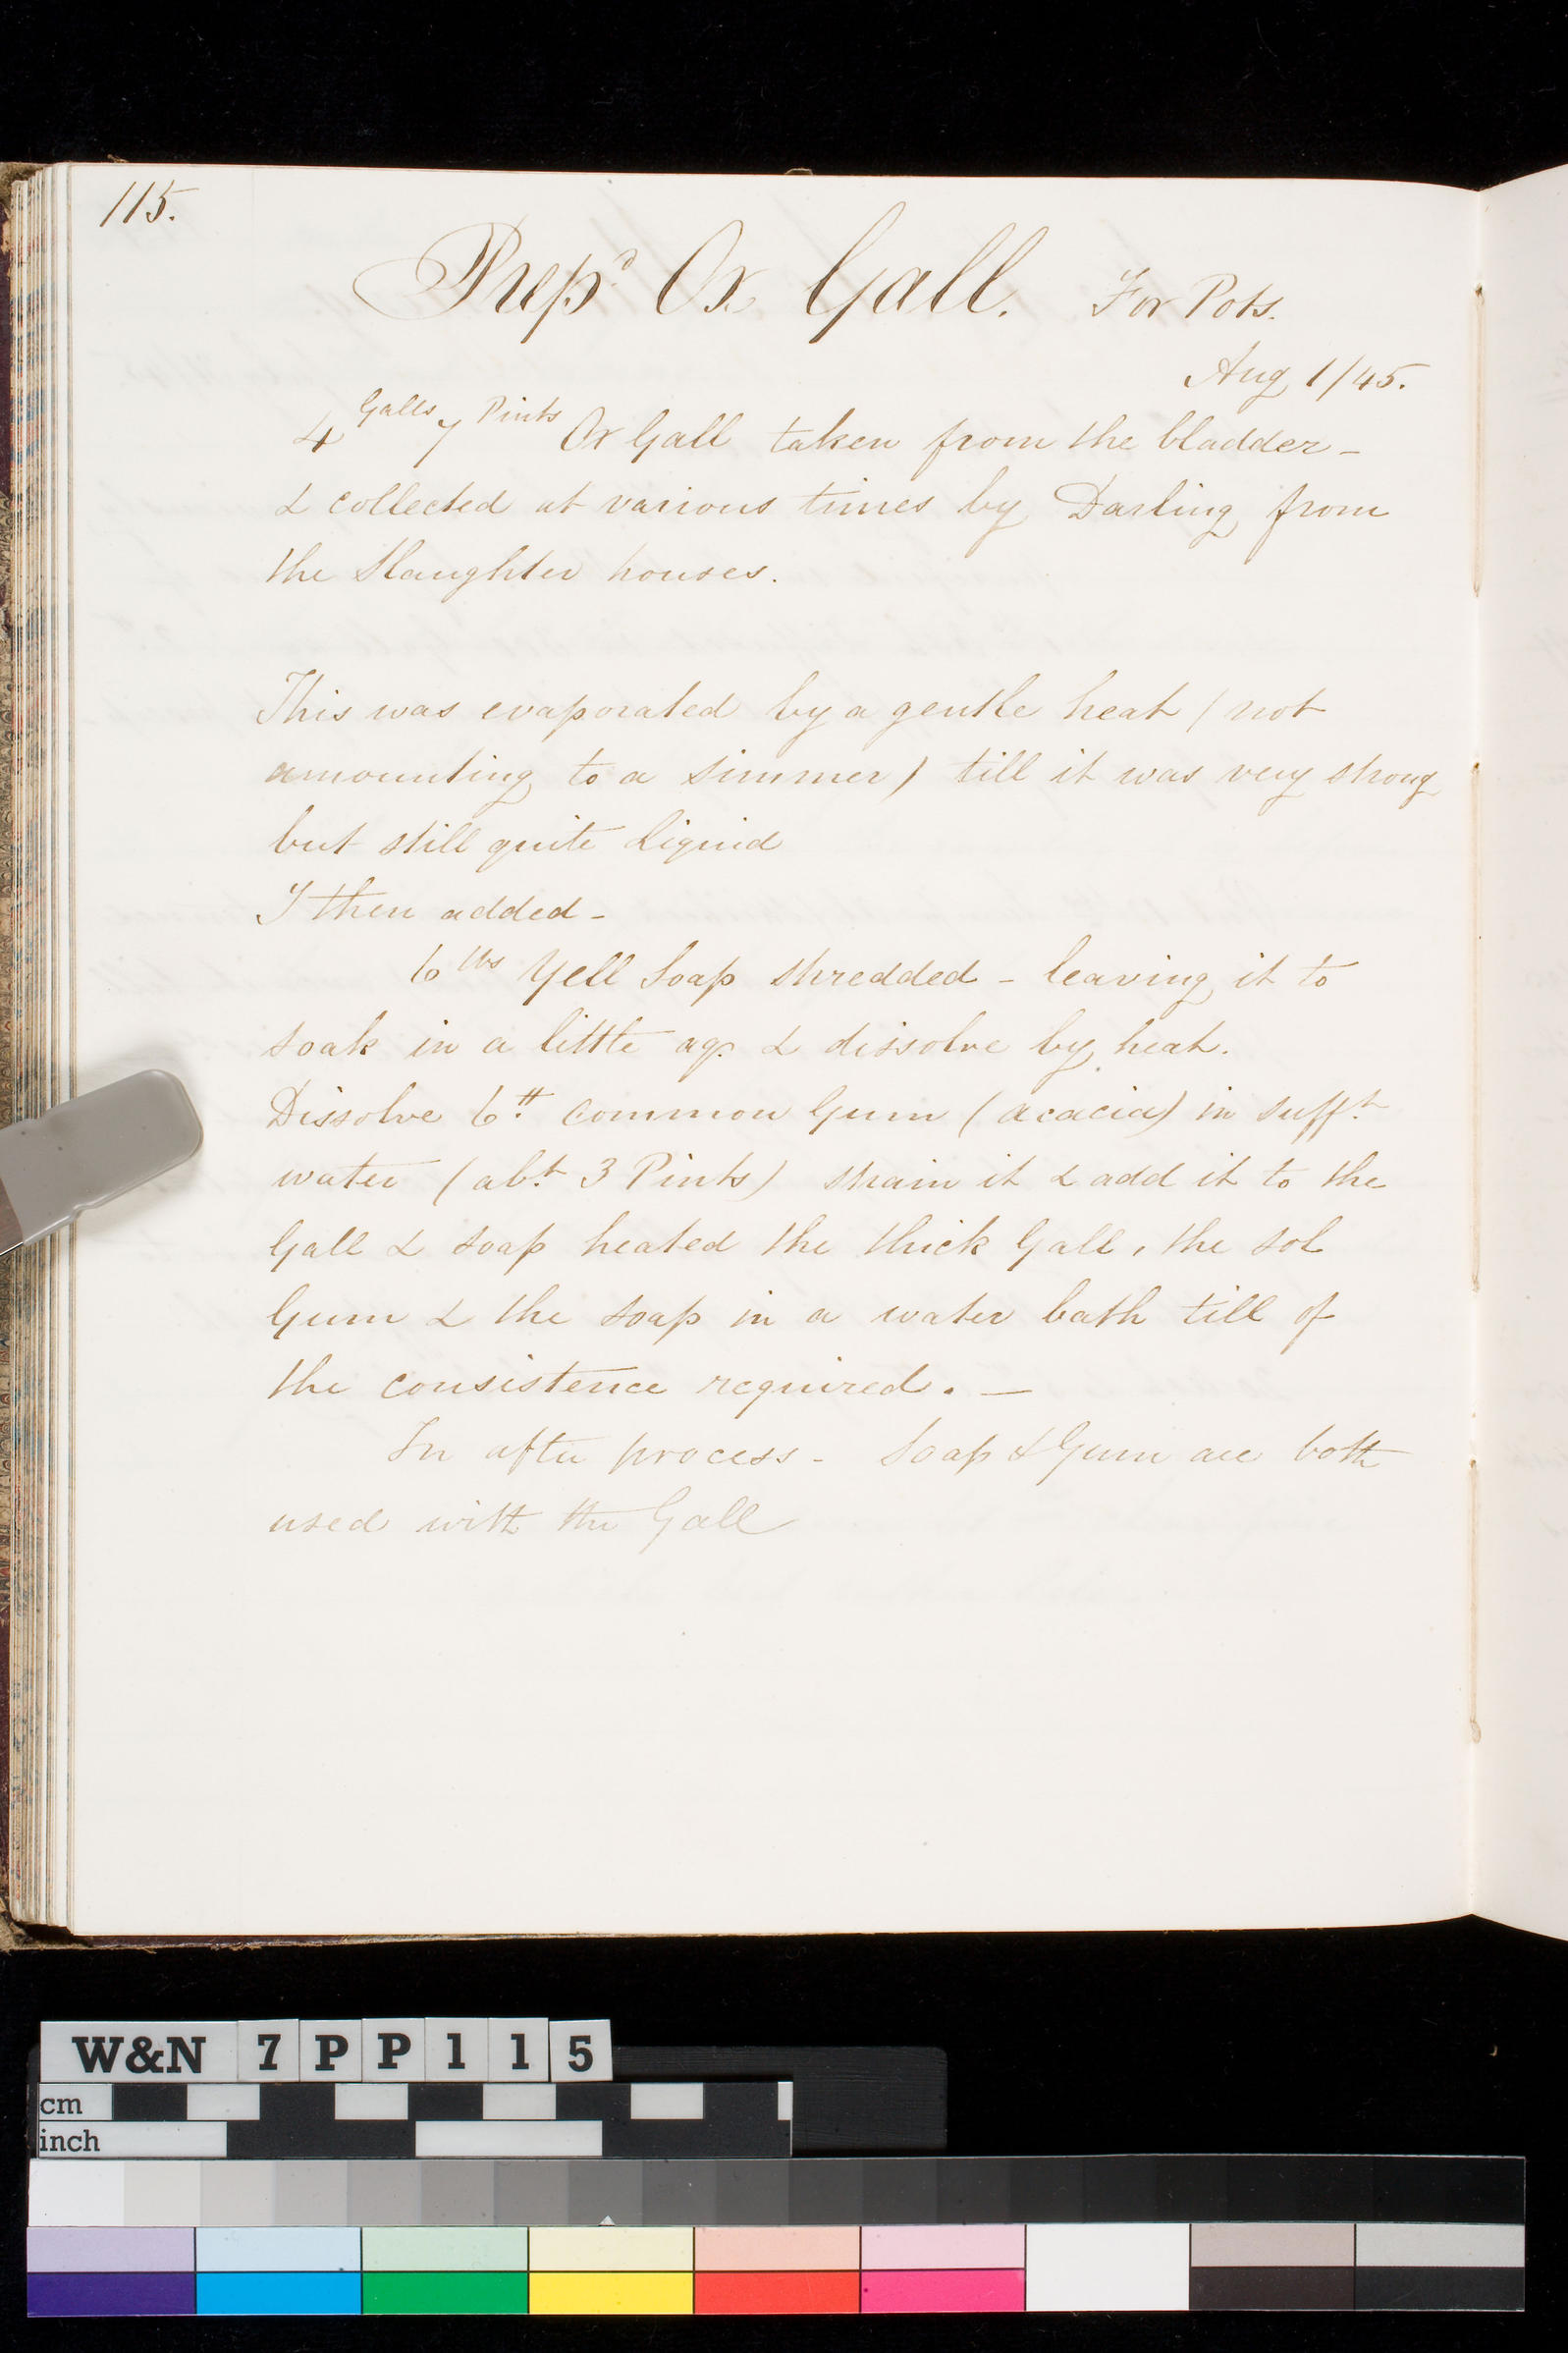 115.
Prepd Ox Gall. For Pots.
Aug 1/45.
4 Galls 7 Pints Ox Gall taken from the bladder -
& collected at various times by Darling from
the Slaughter houses.
This was evaporated by a gentle heat (not
amounting to a simmer) till it was very strong
but still quite liquid
I then added -
6 lbs Yell Soap shredded - leaving it to
soak in a little aq. & dissolve by heat.
Dissolve 6 lb common Gum (acacia) in sufft
water (abt 3 Pints) strain it & add it to the
Gall & soap heated the thick Gall, the sol
Gum & the soap in a water bath till of
the consistence required. —
In after process - Soap & Gum are both
used with the Gall
W&N 7PP115
cm
inch